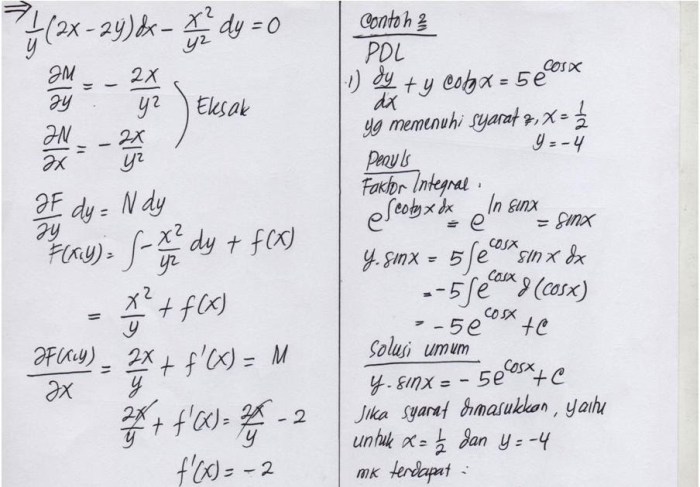 ⇒ 1/y (2x - 2y) dx - x²/y² dy = 0
∂M/∂y = - 2x/y²
Eksak
∂N/∂x = - 2x/y²
∂F/∂y dy = N dy
F(x,y) = ∫ - x²/y² dy + f(x)
= x²/y + f(x)
∂F(x,y)/∂x = 2x/y + f'(x) = M
2x/y + f'(x) = 2x/y - 2
f'(x) = -2
Contoh 2
PDL
1) dy/dx + y cotg x = 5e^cosx
yg memenuhi syarat 2, x = 1/2
y = -4
Penyls
Faktor Integral.
e^∫cotg x dx = e^ln sinx = sinx
y. sinx = 5∫e^cosx sin x dx
= -5∫e^cosx d(cosx)
= -5e^cosx + c
Solusi umum
y. sinx = -5e^cosx + c
Jika syarat dimasukkan, yaitu
untuk x = 1/2 dan y = -4
mk terdapat :